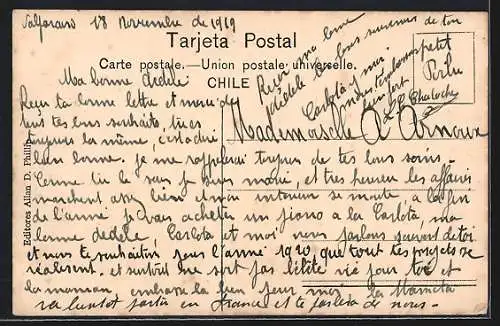 18 Novembre de 1919
Tarjeta Postal
Carte postale.—Union postale universelle.
CHILE
Editores Allan D. Phillips
Ma bonne dédèle
Reçu ta bonne lettre et merci de
tous tes bons souhaits, tu es
toujours la même, c'est à dire
bien bonne. je me rappelerai toujours de tes bons soins.
Comme tu le sais je suis marié, et très heureux les affaires
marchent assez bien et mon intention se monte à la fin
de l'année je vais acheter un piano a la Carlota, ma
bonne dédèle, Carlota et moi nous parlons souvent de toi
et nous te souhaitons pour l'année 1920 que tous tes projets se
réalisent. et surtout une petite vie pour toi et
la maman embrasse la bien pour moi la Mameta
va bientôt partir en France et te parlera de nous.
Mademoiselle A Arnoux
Reçois ma bonne
dédèle les bons souvenirs de ton
petit
Carlota et moi
t'embrassons
bien fort